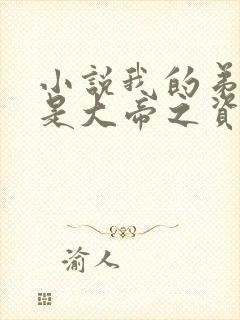 小說我的弟
是大帝之資
渝人